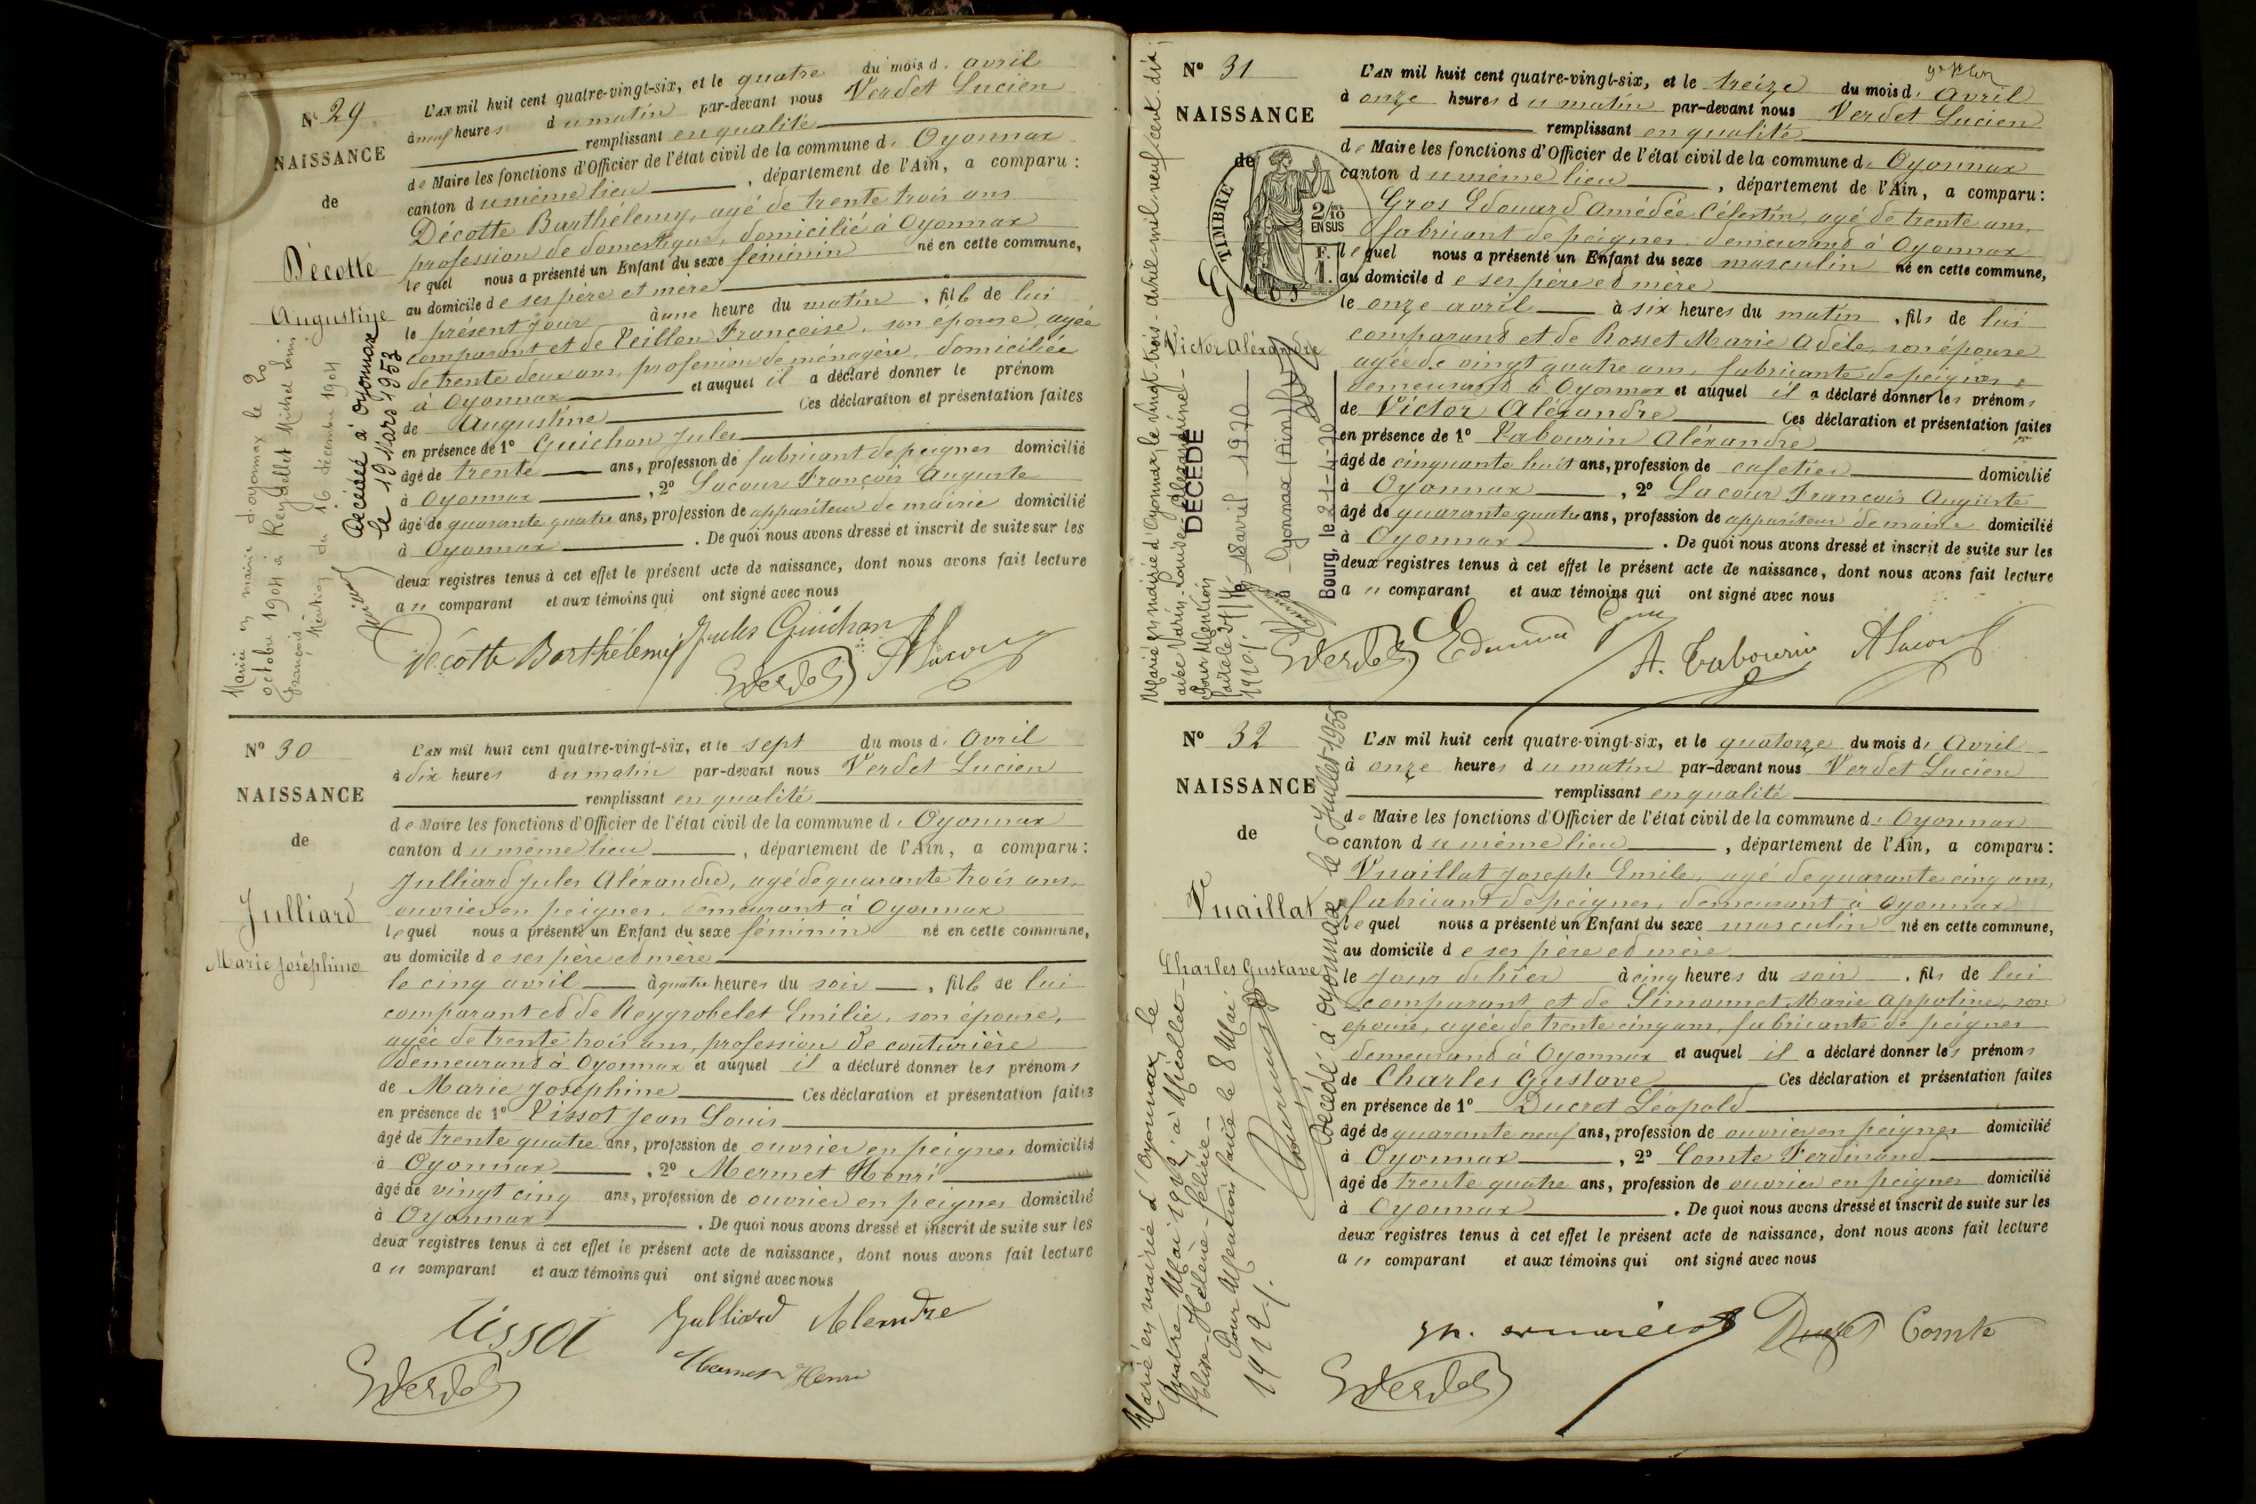 N° 29
NAISSANCE
de
Décotte
Augustine
L'AN mil huit cent quatre-vingt-six, et le quatre du mois d' avril
à neuf heures du matin par-devant nous Verdet Lucien
remplissant en qualité
de Maire les fonctions d'Officier de l'état civil de la commune d' Oyonnax
canton du même lieu, département de l'Ain, a comparu :
Décotte Barthélemy, agé de trente trois ans
profession de domestique, domicilié à Oyonnax
lequel nous a présenté un Enfant du sexe féminin né en cette commune,
au domicile de ses père et mère
le présent jour à une heure du matin, fille de lui
comparant et de Veillon Françoise, son épouse, agée
de trente deux ans, profession de ménagère, domiciliée
à Oyonnax et auquel il a déclaré donner le prénom
de Augustine Ces déclaration et présentation faites
en présence de 1° Guichon Jules
âgé de trente ans, profession de fabricant de peignes domicilié
à Oyonnax, 2° Lacour François Auguste
âgé de quarante quatre ans, profession de appariteur de mairie domicilié
à Oyonnax. De quoi nous avons dressé et inscrit de suite sur les
deux registres tenus à cet effet le présent acte de naissance, dont nous avons fait lecture
au comparant et aux témoins qui ont signé avec nous
Décotte Barthélemy Jules Guichon ALacour
Verdet
Mariée en mairie d'oyonnax le 20
octobre 1904 à Reydellet Michel
François
Mention du 16 décembre 1904
Décédée à Oyonnax
le 19 Mars 1953
N° 30
NAISSANCE
de
Julliard
Marie Joséphine
L'AN mil huit cent quatre-vingt-six, et le sept du mois d' Avril
à dix heures du matin par-devant nous Verdet Lucien
remplissant en qualité
de Maire les fonctions d'Officier de l'état civil de la commune d' Oyonnax
canton du même lieu, département de l'Ain, a comparu :
Julliard Jules Aléxandre, agé de quarante trois ans,
ouvrier en peignes, demeurant à Oyonnax
lequel nous a présenté un Enfant du sexe féminin né en cette commune,
au domicile de ses père et mère
le cinq avril à quatre heures du soir, fille de lui
comparant et de Reygrobelet Emilie, son épouse,
agée de trente trois ans, profession de couturière
demeurant à Oyonnax et auquel il a déclaré donner les prénoms
de Marie Joséphine Ces déclaration et présentation faites
en présence de 1° Tissot Jean Louis
âgé de trente quatre ans, profession de ouvrier en peignes domicilié
à Oyonnax, 2° Mermet Henri
âgé de vingt cinq ans, profession de ouvrier en peignes domicilié
à Oyonnax. De quoi nous avons dressé et inscrit de suite sur les
deux registres tenus à cet effet le présent acte de naissance, dont nous avons fait lecture
au comparant et aux témoins qui ont signé avec nous
Tissot Julliard Alexandre
Verdet Mermet Henri
N° 31
NAISSANCE
de
TIMBRE
2/10 EN SUS
Victor Aléxandre
L'AN mil huit cent quatre-vingt-six, et le treize du mois d' Avril
à onze heures du matin par-devant nous Verdet Lucien
remplissant en qualité
de Maire les fonctions d'Officier de l'état civil de la commune d' Oyonnax
canton du même lieu, département de l'Ain, a comparu :
Gros Edouard Amédée Célestin, agé de trente ans,
fabricant de peignes demeurant à Oyonnax
lequel nous a présenté un Enfant du sexe masculin né en cette commune,
au domicile de ses père et mère
le onze avril à six heures du matin, fils de lui
comparant et de Rosset Marie Adèle, son épouse
agée de vingt quatre ans, fabricante de peignes
demeurant à Oyonnax et auquel il a déclaré donner les prénoms
de Victor Aléxandre Ces déclaration et présentation faites
en présence de 1° Tabourin Aléxandre
âgé de cinquante huit ans, profession de cafetier domicilié
à Oyonnax, 2° Lacour François Auguste
âgé de quarante quatre ans, profession de appariteur de mairie domicilié
à Oyonnax. De quoi nous avons dressé et inscrit de suite sur les
deux registres tenus à cet effet le présent acte de naissance, dont nous avons fait lecture
au comparant et aux témoins qui ont signé avec nous
Verdet Edouard Gros A. Tabourin ALacour
Marié en mairie d'Oyonnax, le vingt-trois avril mil neuf cent dix
avec Varin Louise
Pour Mention
DÉCÉDÉ
le 18 avril 1970
à Oyonnax (Ain)
Bourg, le 21-4-70
N° 32
NAISSANCE
de
Vuaillat
Charles Gustave
L'AN mil huit cent quatre-vingt-six, et le quatorze du mois d' Avril
à onze heures du matin par-devant nous Verdet Lucien
remplissant en qualité
de Maire les fonctions d'Officier de l'état civil de la commune d' Oyonnax
canton du même lieu, département de l'Ain, a comparu :
Vuaillat Joseph Emile, agé de quarante cinq ans,
fabricant de peignes, demeurant à Oyonnax
lequel nous a présenté un Enfant du sexe masculin né en cette commune,
au domicile de ses père et mère
le jour d'hier à cinq heures du soir, fils de lui
comparant et de Simonnet Marie Appoline, son
épouse, agée de trente cinq ans, fabricante de peignes
demeurant à Oyonnax et auquel il a déclaré donner les prénoms
de Charles Gustave Ces déclaration et présentation faites
en présence de 1° Ducrot Léopold
âgé de quarante neuf ans, profession de ouvrier en peignes domicilié
à Oyonnax, 2° Comte Ferdinand
âgé de trente quatre ans, profession de ouvrier en peignes domicilié
à Oyonnax. De quoi nous avons dressé et inscrit de suite sur les
deux registres tenus à cet effet le présent acte de naissance, dont nous avons fait lecture
au comparant et aux témoins qui ont signé avec nous
Ducrot Comte
Verdet
Marié en mairie d'Oyonnax, le
quatre Mai 1912, à Nicollet
Elise-Hélène-Félicie
Pour Mention faite le 8 Mai
1912
Décédé à Oyonnax le 6 Juillet 1955